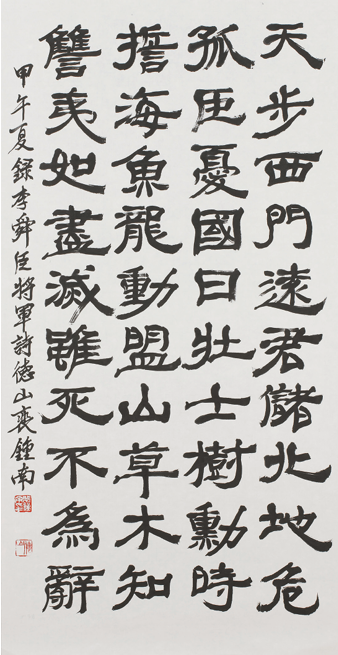 天步西門遠君儲北地危
孤臣憂國日壯士樹勳時
誓海魚龍動盟山草木知
讐夷如盡滅雖死不為辭
甲午夏錄李舜臣將軍詩德山裵鍾南